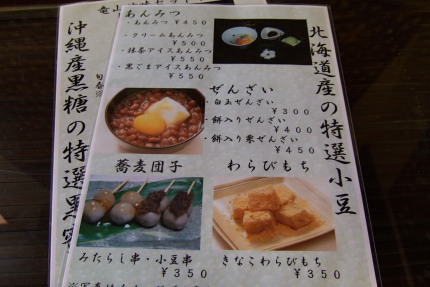 北海道産の特選小豆
あんみつ
・あんみつ ¥450
・クリームあんみつ
¥500
・抹茶アイスあんみつ
¥550
・黒ごまアイスあんみつ
¥550
ぜんざい
・白玉ぜんざい
¥300
・餅入りぜんざい
¥400
・餅入り栗ぜんざい
¥450
蕎麦団子
みたらし串・小豆串
¥350
わらびもち
きなこわらびもち
¥350
沖縄産黒糖の特選黒蜜